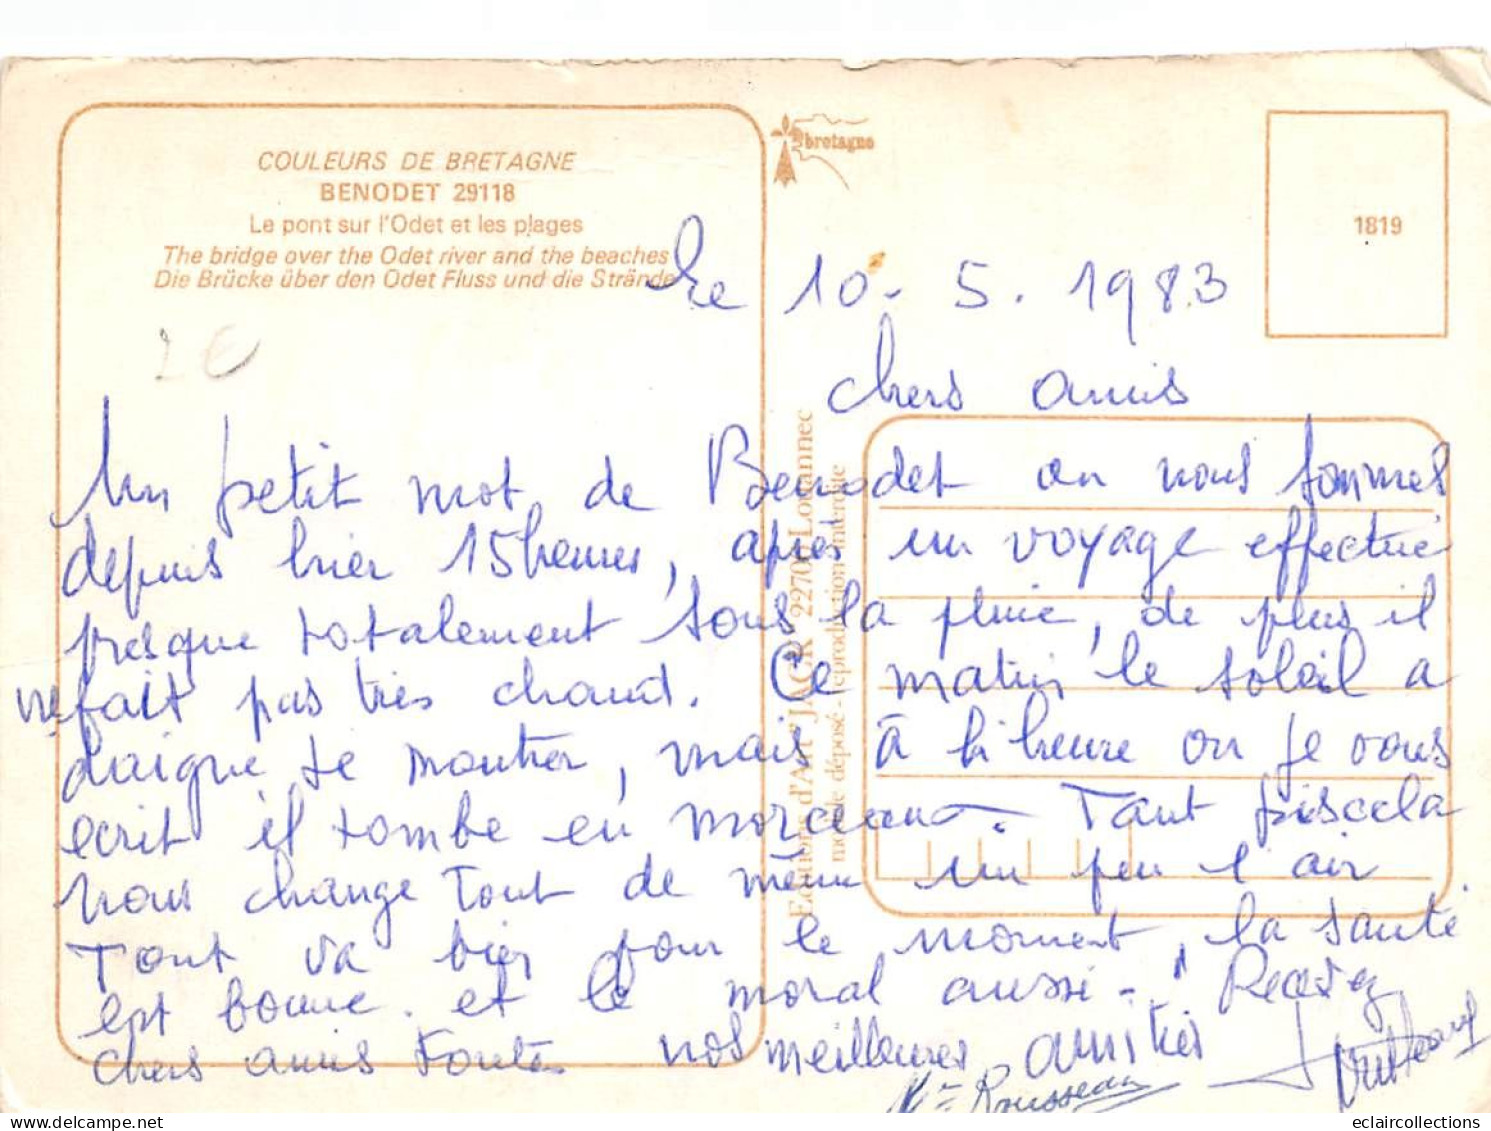 COULEURS DE BRETAGNE
BENODET 29118
Le pont sur l'Odet et les plages
The bridge over the Odet river and the beaches
Die Brücke über den Odet Fluss und die Strände
bretagne
1819
2€
Le 10. 5. 1983
Chers amis
Un petit mot de Benodet ou nous sommes
depuis hier 15 heures, après un voyage effectué
presque totalement sous la pluie, de plus il
ne fait pas très chaud. Ce matin le soleil a
daigné se montrer, mais à l'heure ou je vous
ecrit il tombe en morceaux. Tant pis cela
nous change tout de même un peu l'air
Tout va bien pour le moment, la santé
est bonne. et le moral aussi - Recevez
chers amis toutes nos meilleures amitiés
Mme Rousseau
Editions d'Art "JACK" 22700 Louannec
modèle déposé - reproduction interdite
eclaircollections